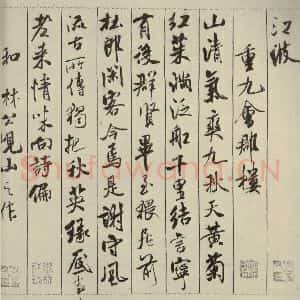 江波
重九會郡樓
山清氣爽九秋天黃菊
紅茱滿泛船千里結言寧
有後群賢畢至猥居前
杜郎閑客今焉是謝守風
流古所傳獨把秋英緣底事
老來情味向詩偏
和林公峴山之作
Shufawang.CN